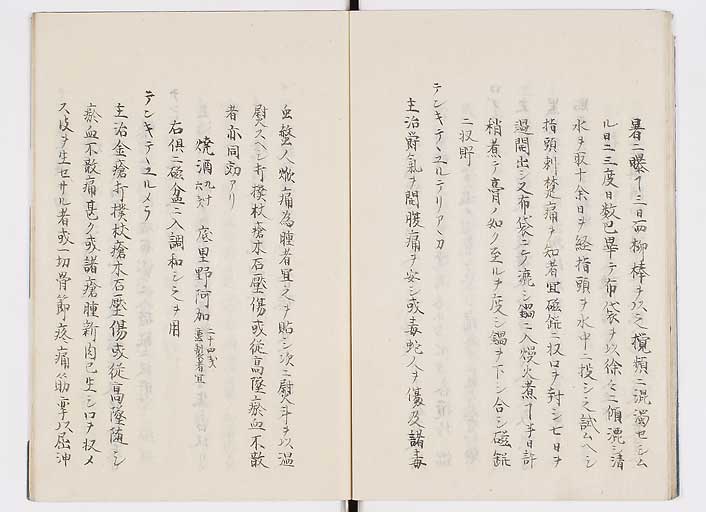 暑ニ曝ヿ三日而柳棒ヲ以之攪頻ニ混濁セシム
ル日ニ三度日数已畢テ布袋ヲ以徐々ニ傾漉シ清
水ヲ取十余日ヲ経指頭ヲ水中ニ投シ之試ムヘシ
指頭刺楚痛ヲ知者宜磁錠ニ収口ヲ封シ七日ヲ
過開出シ又布袋ニテ漉シ鍋ニ入慢火煮ヿ半日許
稍煮テ膏ノ如ク至ルヲ度シ鍋ヲ下シ合シ磁錠
ニ収貯
テンキテーユルテリアーカ
主治欝氣ヲ開腹痛ヲ安シ或毒蛇人ヲ傷及諸毒
虫螫人焮痛為腫者宜之ヲ貼シ次ニ熨斗ヲ以温
熨スヘシ打撲杖瘡木石壓傷或従高墜瘀血不散
者亦同効アリ
焼酒 底里野阿加 二十四戔
右俱ニ磁盆ニ入調和シ之ヲ用
テンキテーユルメラ
主治金瘡打撲杖瘡木石壓傷或従高墜墮シ
瘀血不散痛甚ク或諸瘡腫新肉已生シ口ヲ収メ
ス皮ヲ生セサル者或一切骨節疼痛筋攣以屈沖